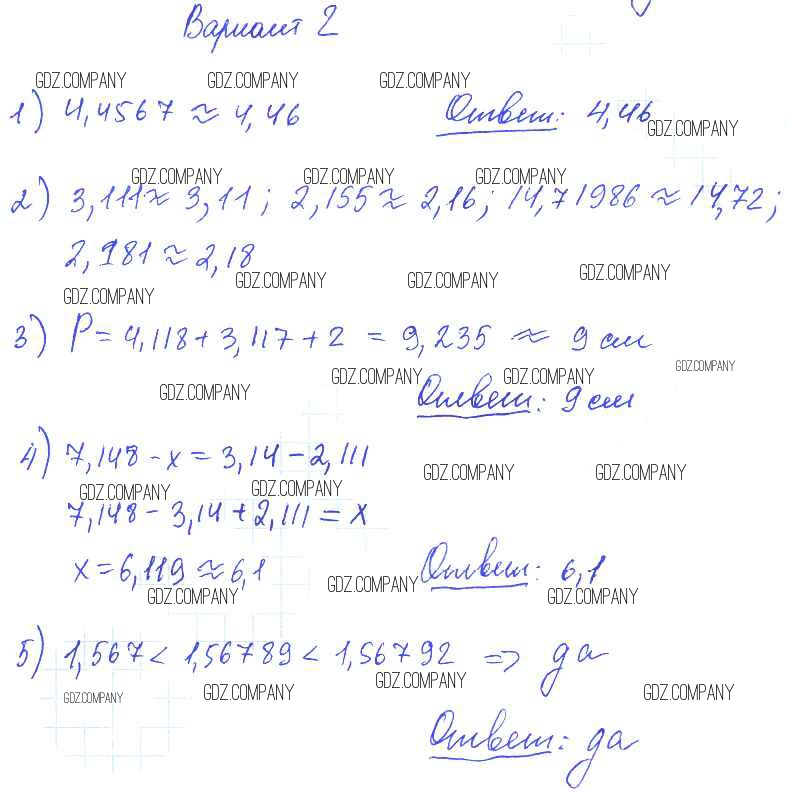 Вариант 2
GDZ.COMPANY GDZ.COMPANY GDZ.COMPANY
1) 4,4567 ≈ 4,46 Ответ: 4,46
GDZ.COMPANY
GDZ.COMPANY GDZ.COMPANY GDZ.COMPANY
2) 3,111 ≈ 3,11; 2,155 ≈ 2,16; 14,71986 ≈ 14,72;
2,181 ≈ 2,18
GDZ.COMPANY GDZ.COMPANY GDZ.COMPANY
GDZ.COMPANY
3) P = 4,118 + 3,117 + 2 = 9,235 ≈ 9 см
GDZ.COMPANY
GDZ.COMPANY GDZ.COMPANY GDZ.COMPANY
Ответ: 9 см
4) 7,148 - x = 3,14 - 2,111
GDZ.COMPANY GDZ.COMPANY
GDZ.COMPANY GDZ.COMPANY
7,148 - 3,14 + 2,111 = x
x = 6,119 ≈ 6,1 Ответ: 6,1
GDZ.COMPANY GDZ.COMPANY GDZ.COMPANY
5) 1,567 < 1,56789 < 1,56792 => да
GDZ.COMPANY GDZ.COMPANY GDZ.COMPANY GDZ.COMPANY
Ответ: да